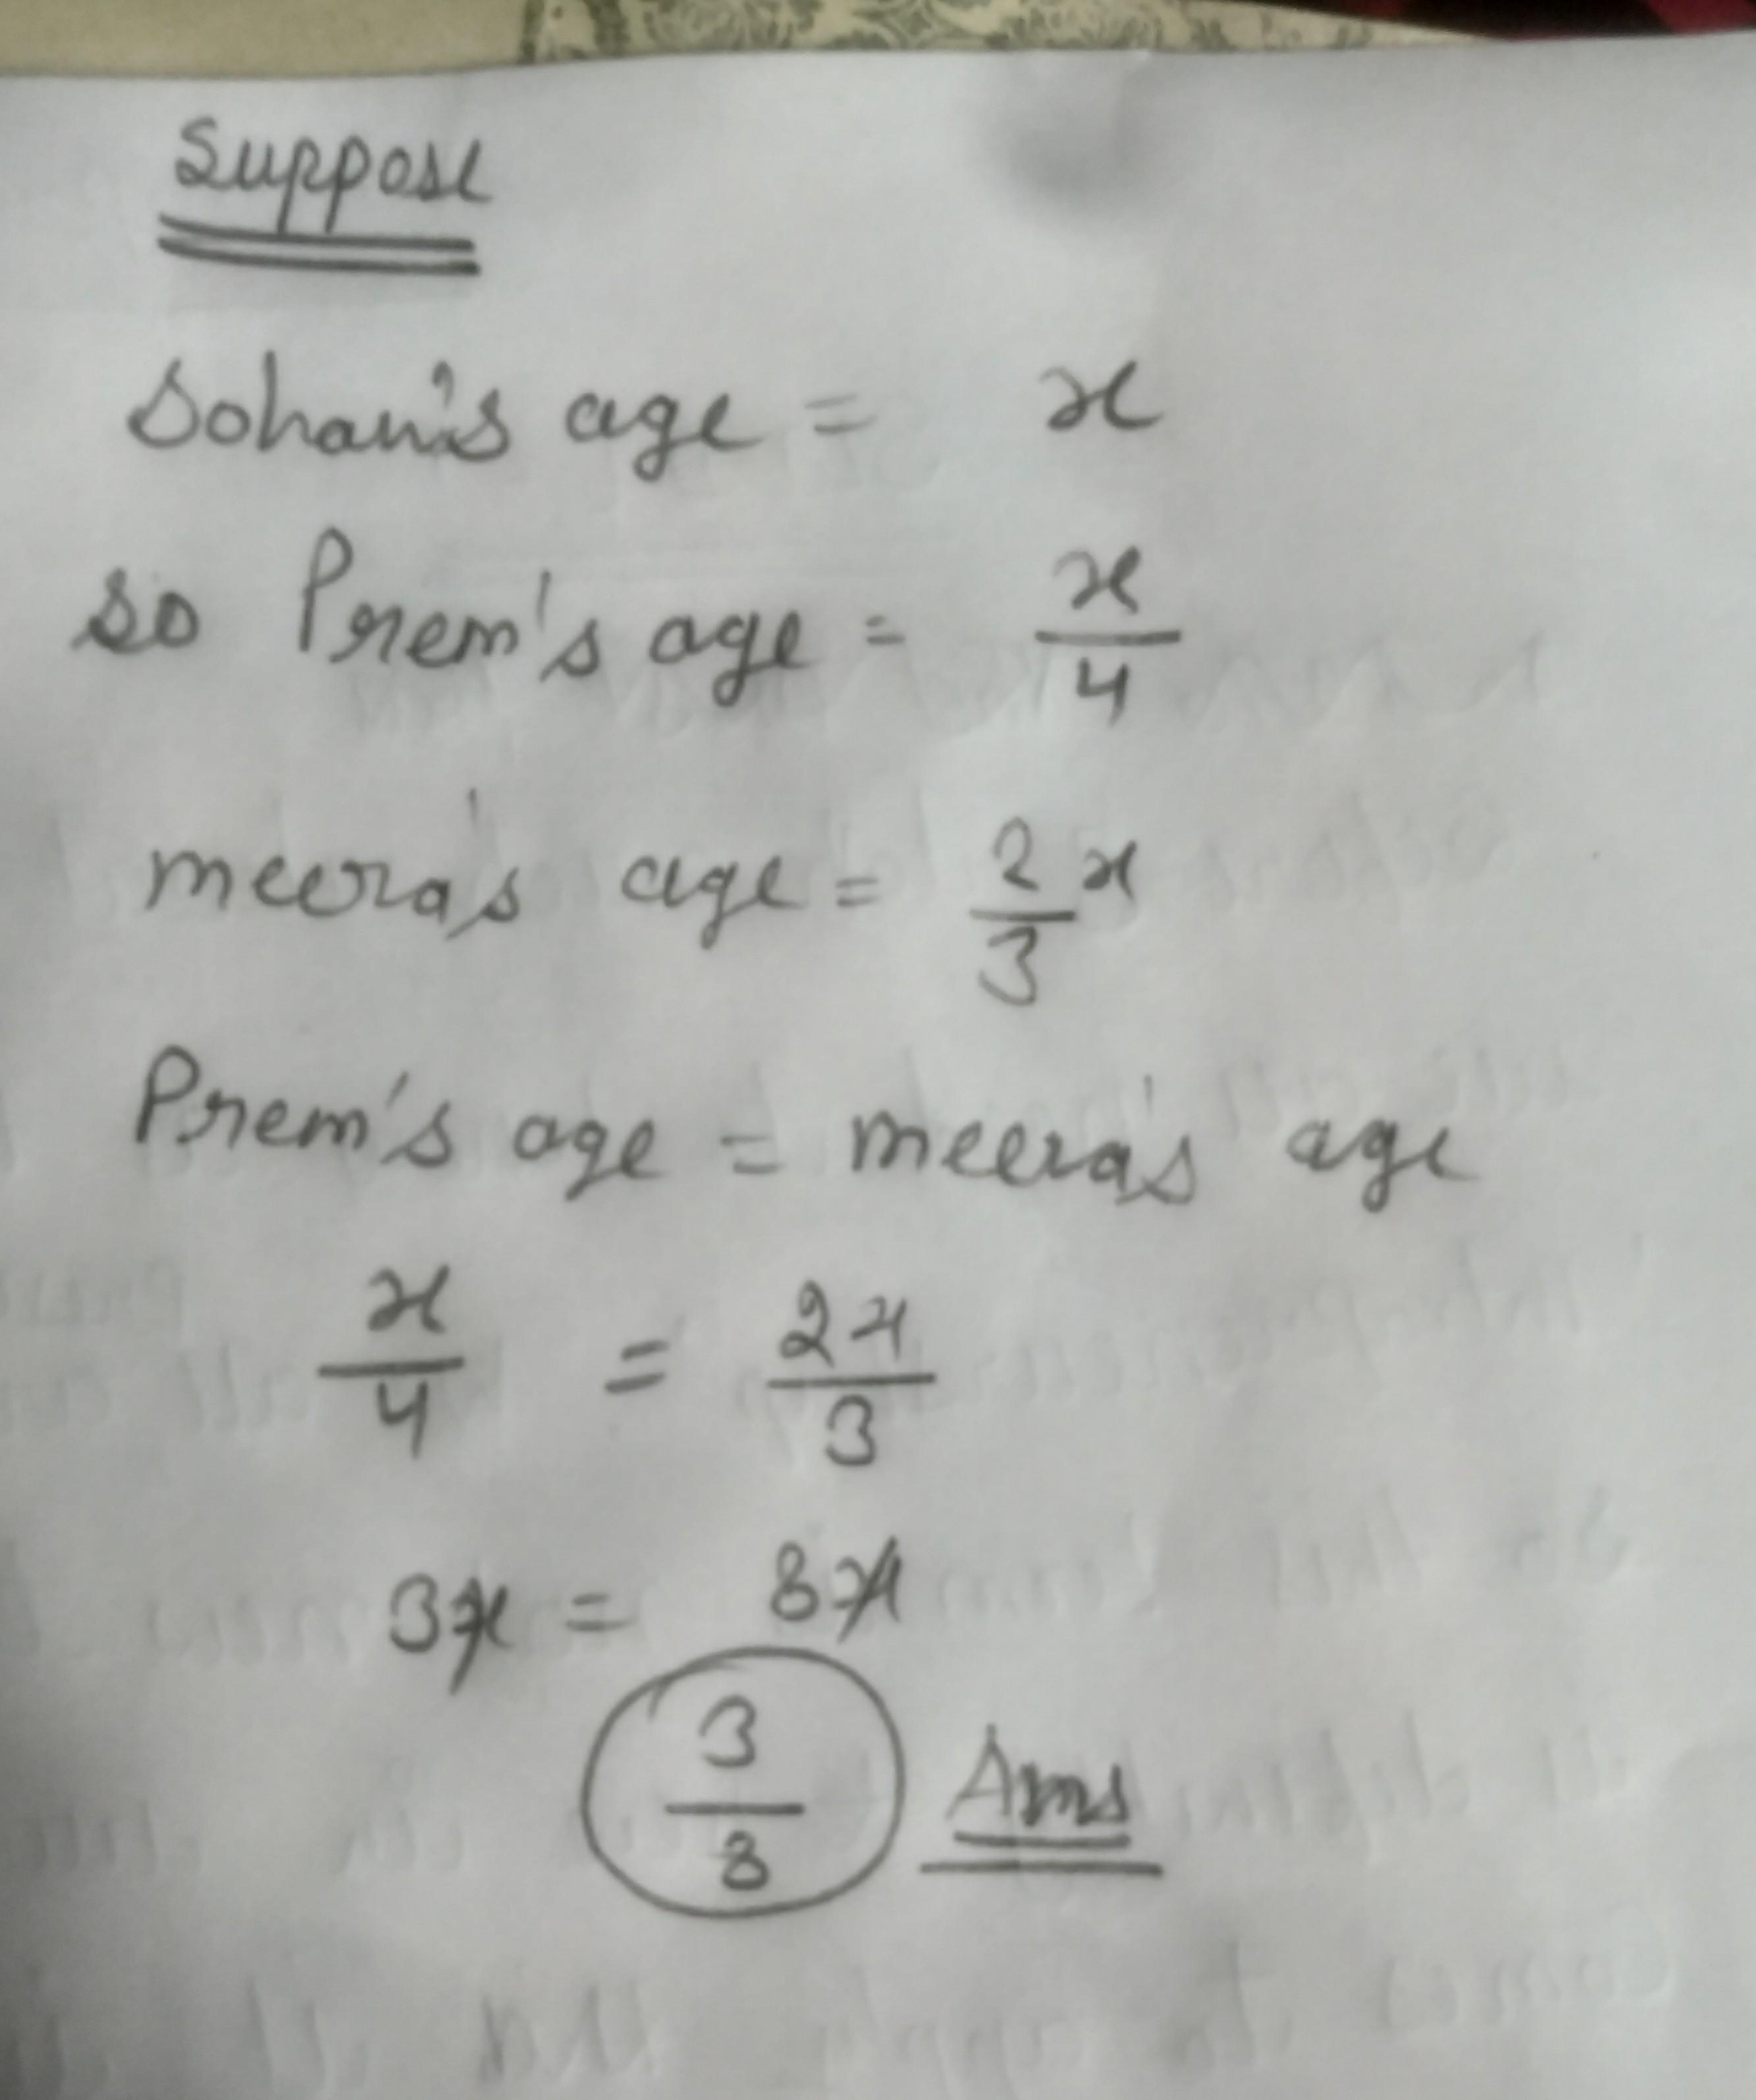 Suppose
Sohan's age = x
so Prem's age = x/4
meera's age = 2/3 x
Prem's age = meera's age
x/4 = 2x/3
3x = 8x
3/8 Ans